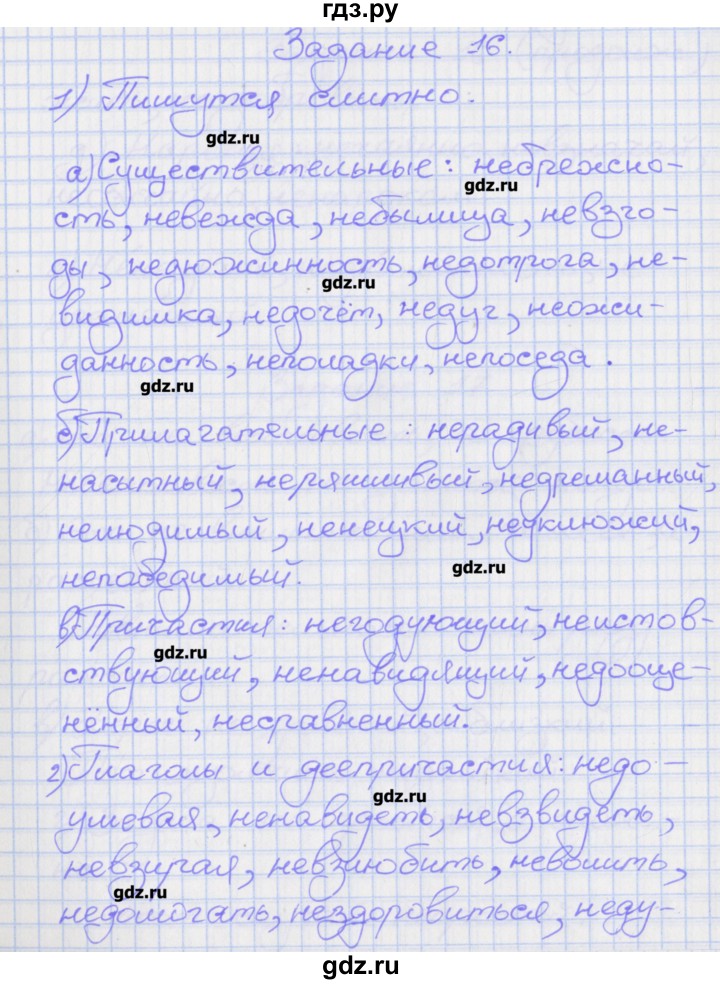 гдз.ру
Задание 16.
1) Пишутся слитно:
gdz.ru
а) Существительные: небрежно-
gdz.ru
сть, невежда, небылица, невзго-
ды, недюжинность, недотрога, не-
gdz.ru
видимка, недочёт, недуг, неожи-
данность, неполадки, непоседа.
gdz.ru
б) Прилагательные: нерадивый, не-
насытный, неряшливый, недреманный,
нелюдимый, ненецкий, неуклюжий,
gdz.ru
непобедимый.
в) Причастия: негодующий, неистов-
gdz.ru
ствующий, ненавидящий, недооце-
нённый, несравненный.
г) Глаголы и деепричастия: недо-
gdz.ru
умевая, ненавидеть, невзвидеть,
невзирая, невзлюбить, неволить,
gdz.ru
недомогать, нездоровиться, неду-
gdz.ru